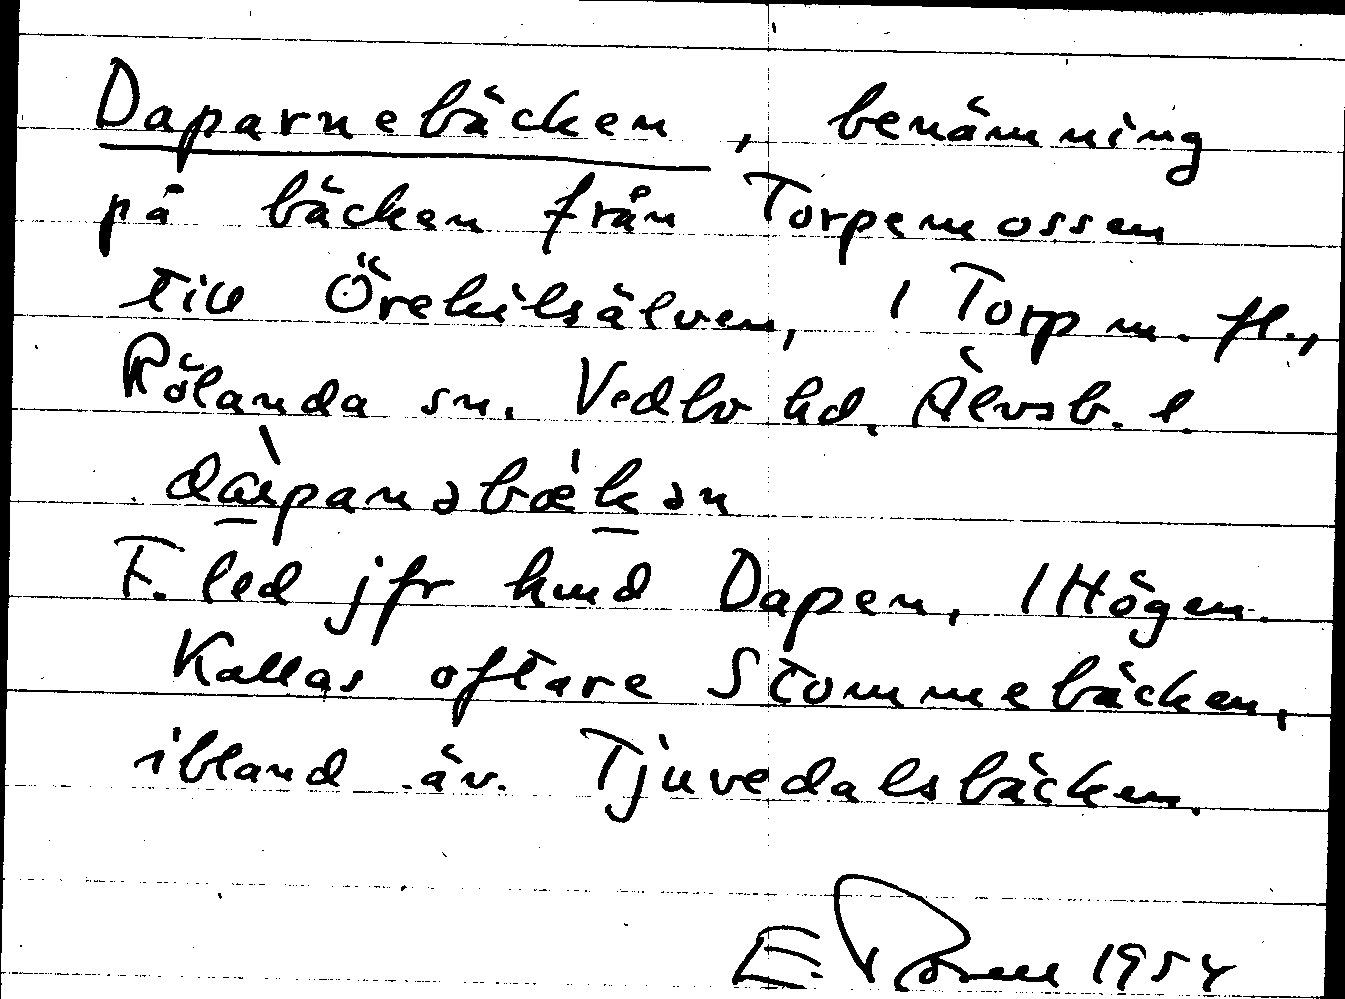 Daparnebäcken, benämning
på bäcken från Torpemossen
till Örekilsälven, 1 Torp m. fl.,
Rölanda sn. Vedbo hd. Älvsb. l.
F. led jfr kmd Dapen, 1 Högen.
Kallas oftare Stommebäcken,
ibland äv. Tjuvedalsbäcken.
E. 1954